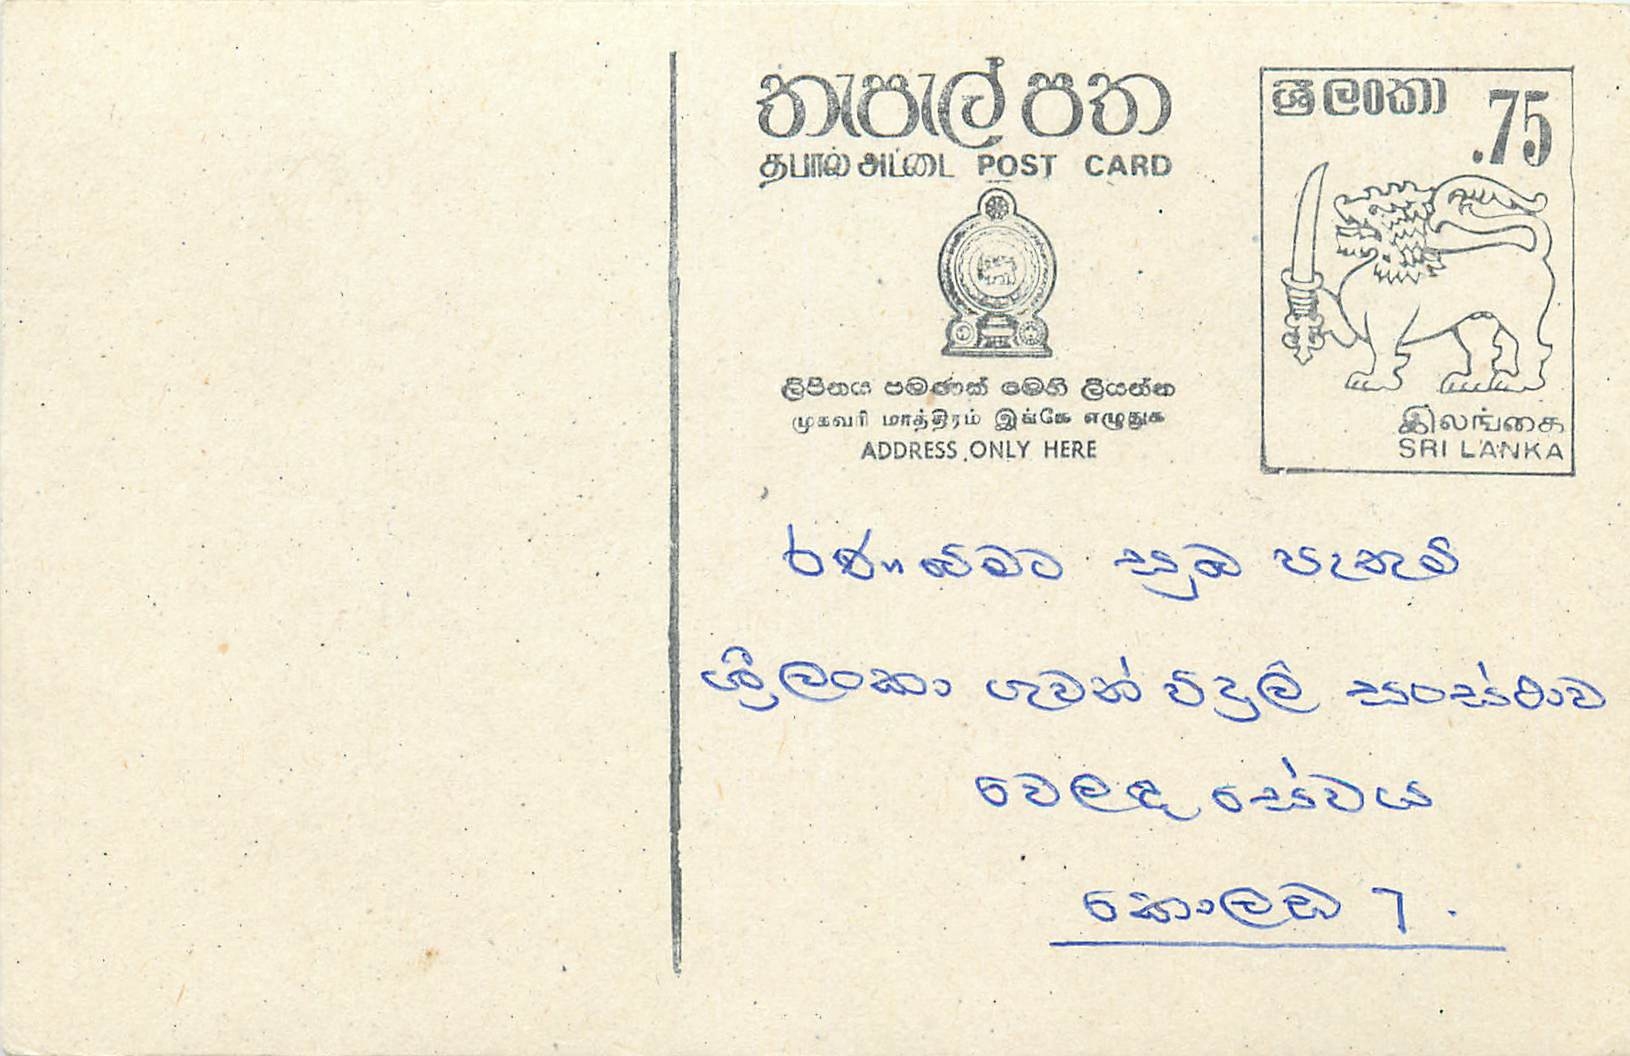 තැපැල් පත
தபால் அட்டை POST CARD
ලිපිනය පමණක් මෙහි ලියන්න
முகவரி மாத்திரம் இங்கே எழுதுக
ADDRESS ONLY HERE
ශ්‍රී ලංකා
.75
இலங்கை
SRI LANKA
සුබ පැතුම්
ශ්‍රී ලංකා ගුවන් විදුලි සංස්ථාව
වෙලඳ සේවය
කොලඹ 7.